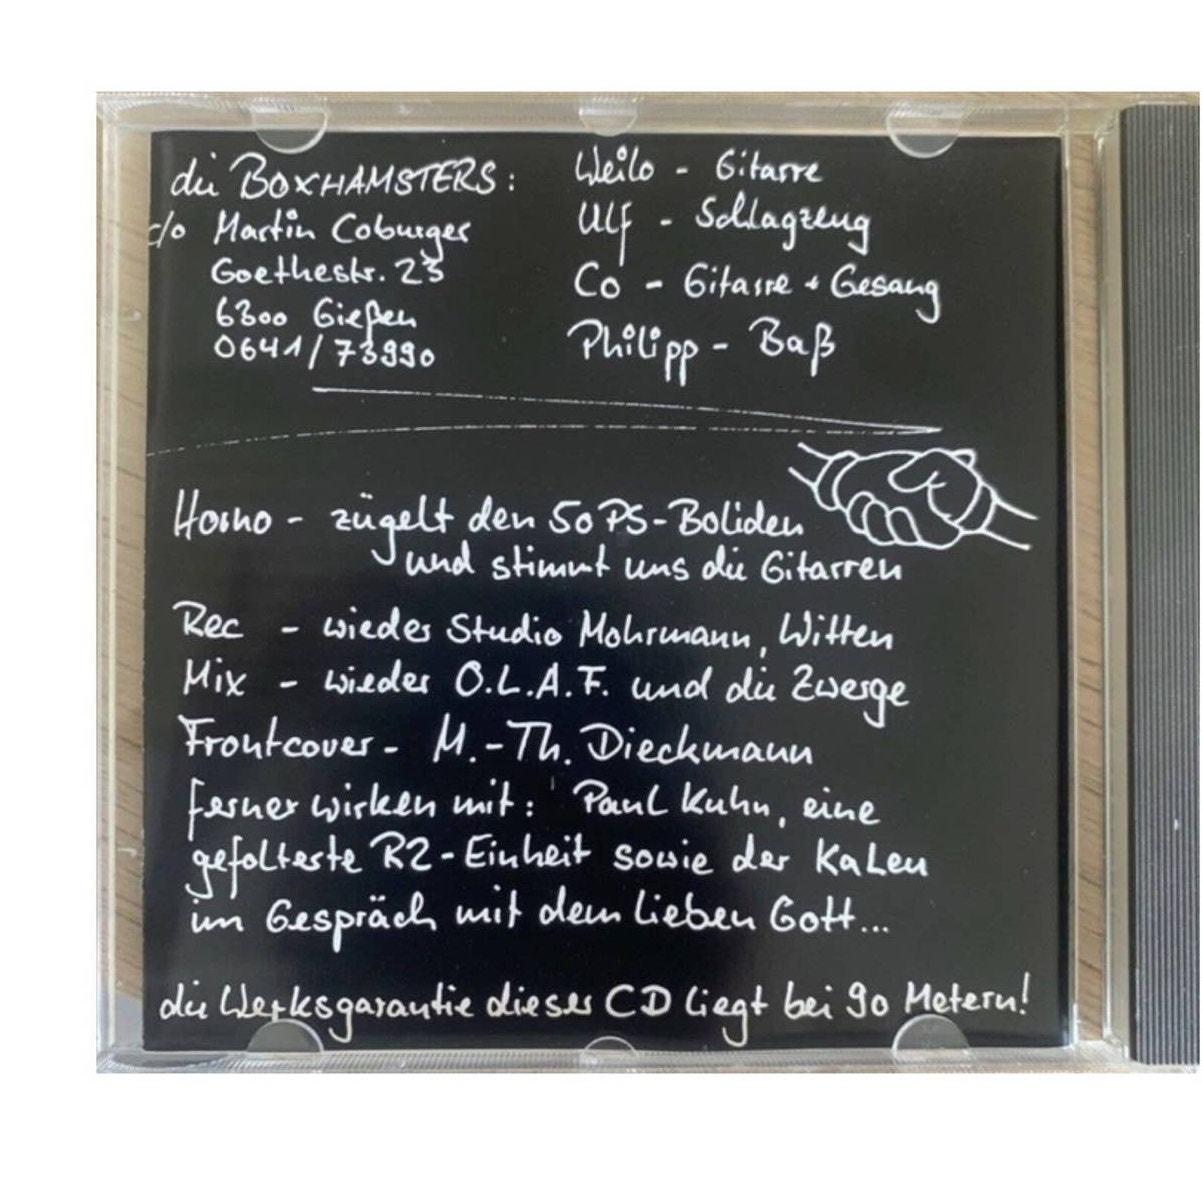 die BOXHAMSTERS:
c/o Martin Coburger
Goethestr. 23
6300 Gießen
0641/73990
Weilo - Gitarre
Ulf - Schlagzeug
Co - Gitarre + Gesang
Philipp - Baß
Homo - zügelt den 50 PS-Boliden
und stimmt uns die Gitarren
Rec - wieder Studio Mohrmann, Witten
Mix - wieder O.L.A.F. und die Zwerge
Frontcover - M.-Th. Dieckmann
ferner wirken mit: Paul Kuhn, eine
gefolterte R2-Einheit sowie der KaLeu
im Gespräch mit dem lieben Gott...
die Werksgarantie dieser CD liegt bei 90 Metern!